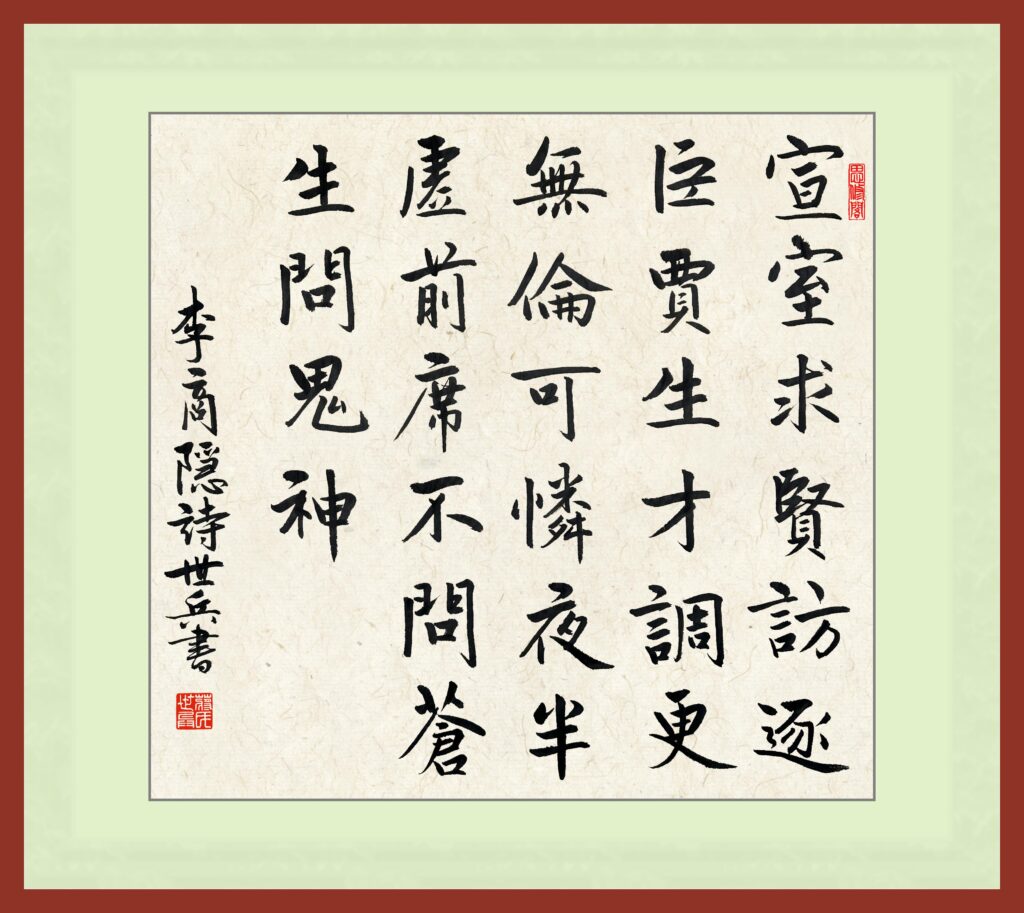 宣室求賢訪逐
臣賈生才調更
無倫可憐夜半
虛前席不問蒼
生問鬼神
李商隱詩世兵書